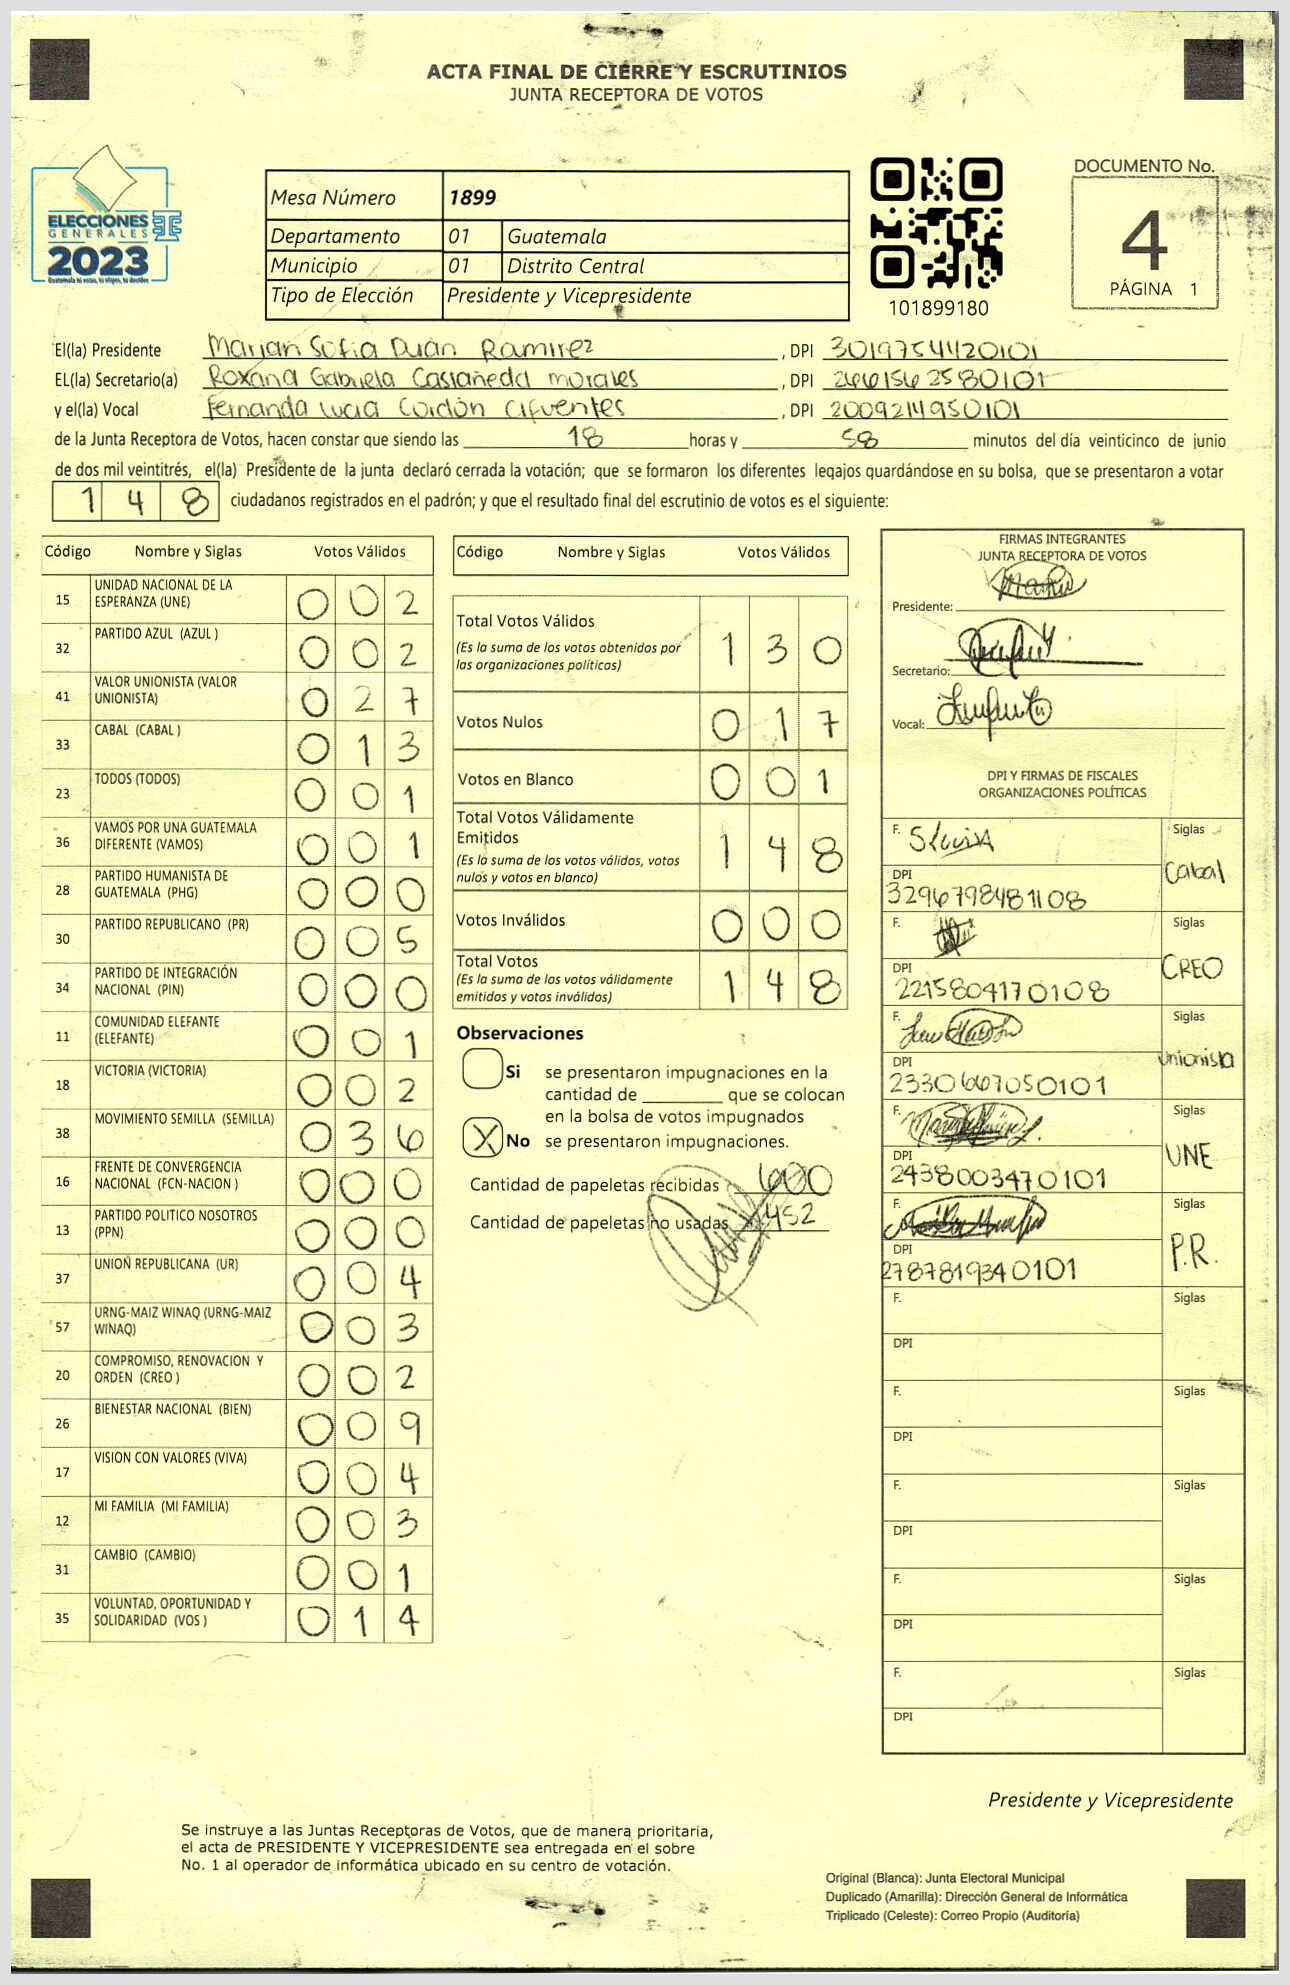 ACTA FINAL DE CIERRE Y ESCRUTINIOS
JUNTA RECEPTORA DE VOTOS
ELECCIONES
GENERALES
2023
Guatemala tú votas, tú eliges, tú decides
Mesa Número 1899
Departamento 01 Guatemala
Municipio 01 Distrito Central
Tipo de Elección Presidente y Vicepresidente
101899180
DOCUMENTO No.
4
PÁGINA 1
El(la) Presidente Marian Sofia Durán Ramirez , DPI 3019754420101
EL(la) Secretario(a) Roxana Gabriela Castañeda morales , DPI 2661562580101
y el(la) Vocal Fernanda Lucia Cordón Cifuentes , DPI 2009214950101
de la Junta Receptora de Votos, hacen constar que siendo las 18 horas y 58 minutos del día veinticinco de junio
de dos mil veintitrés, el(la) Presidente de la junta declaró cerrada la votación; que se formaron los diferentes legajos guardándose en su bolsa, que se presentaron a votar
148 ciudadanos registrados en el padrón; y que el resultado final del escrutinio de votos es el siguiente:
Código Nombre y Siglas Votos Válidos
15 UNIDAD NACIONAL DE LA ESPERANZA (UNE) 0 0 2
32 PARTIDO AZUL (AZUL ) 0 0 2
41 VALOR UNIONISTA (VALOR UNIONISTA) 0 2 7
33 CABAL (CABAL ) 0 1 3
23 TODOS (TODOS) 0 0 1
36 VAMOS POR UNA GUATEMALA DIFERENTE (VAMOS) 0 0 1
28 PARTIDO HUMANISTA DE GUATEMALA (PHG) 0 0 0
30 PARTIDO REPUBLICANO (PR) 0 0 5
34 PARTIDO DE INTEGRACIÓN NACIONAL (PIN) 0 0 0
11 COMUNIDAD ELEFANTE (ELEFANTE) 0 0 1
18 VICTORIA (VICTORIA) 0 0 2
38 MOVIMIENTO SEMILLA (SEMILLA) 0 3 6
16 FRENTE DE CONVERGENCIA NACIONAL (FCN-NACION ) 0 0 0
13 PARTIDO POLITICO NOSOTROS (PPN) 0 0 0
37 UNION REPUBLICANA (UR) 0 0 4
57 URNG-MAIZ WINAQ (URNG-MAIZ WINAQ) 0 0 3
20 COMPROMISO, RENOVACION Y ORDEN (CREO ) 0 0 2
26 BIENESTAR NACIONAL (BIEN) 0 0 9
17 VISION CON VALORES (VIVA) 0 0 4
12 MI FAMILIA (MI FAMILIA) 0 0 3
31 CAMBIO (CAMBIO) 0 0 1
35 VOLUNTAD, OPORTUNIDAD Y SOLIDARIDAD (VOS ) 0 1 4
Código Nombre y Siglas Votos Válidos
Total Votos Válidos 1 3 0
(Es la suma de los votos obtenidos por
las organizaciones políticas)
Votos Nulos 0 1 7
Votos en Blanco 0 0 1
Total Votos Válidamente
Emitidos 1 4 8
(Es la suma de los votos válidos, votos
nulos y votos en blanco)
Votos Inválidos 0 0 0
Total Votos 1 4 8
(Es la suma de los votos válidamente
emitidos y votos inválidos)
Observaciones
Si se presentaron impugnaciones en la
cantidad de ________ que se colocan
en la bolsa de votos impugnados
X No se presentaron impugnaciones.
Cantidad de papeletas recibidas 600
Cantidad de papeletas no usadas 452
FIRMAS INTEGRANTES
JUNTA RECEPTORA DE VOTOS
Presidente:
Secretario:
Vocal:
DPI Y FIRMAS DE FISCALES
ORGANIZACIONES POLÍTICAS
F. Siglas
Cabal
DPI
3296798481108
F. Siglas
CREO
DPI
2215804170108
F. Siglas
unionista
DPI
2330667050101
F. Siglas
UNE
DPI
2438003470101
F. Siglas
P.R.
DPI
2787819340101
F. Siglas
DPI
F. Siglas
DPI
F. Siglas
DPI
F. Siglas
DPI
F. Siglas
DPI
Presidente y Vicepresidente
Se instruye a las Juntas Receptoras de Votos, que de manera prioritaria,
el acta de PRESIDENTE Y VICEPRESIDENTE sea entregada en el sobre
No. 1 al operador de informática ubicado en su centro de votación.
Original (Blanca): Junta Electoral Municipal
Duplicado (Amarilla): Dirección General de Informática
Triplicado (Celeste): Correo Propio (Auditoría)